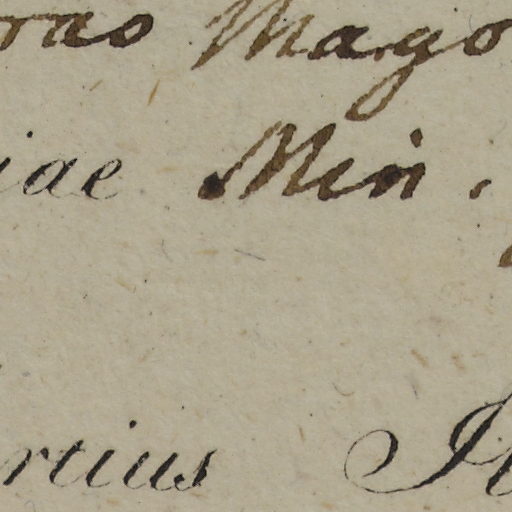 Mago
iae Min.
rtius